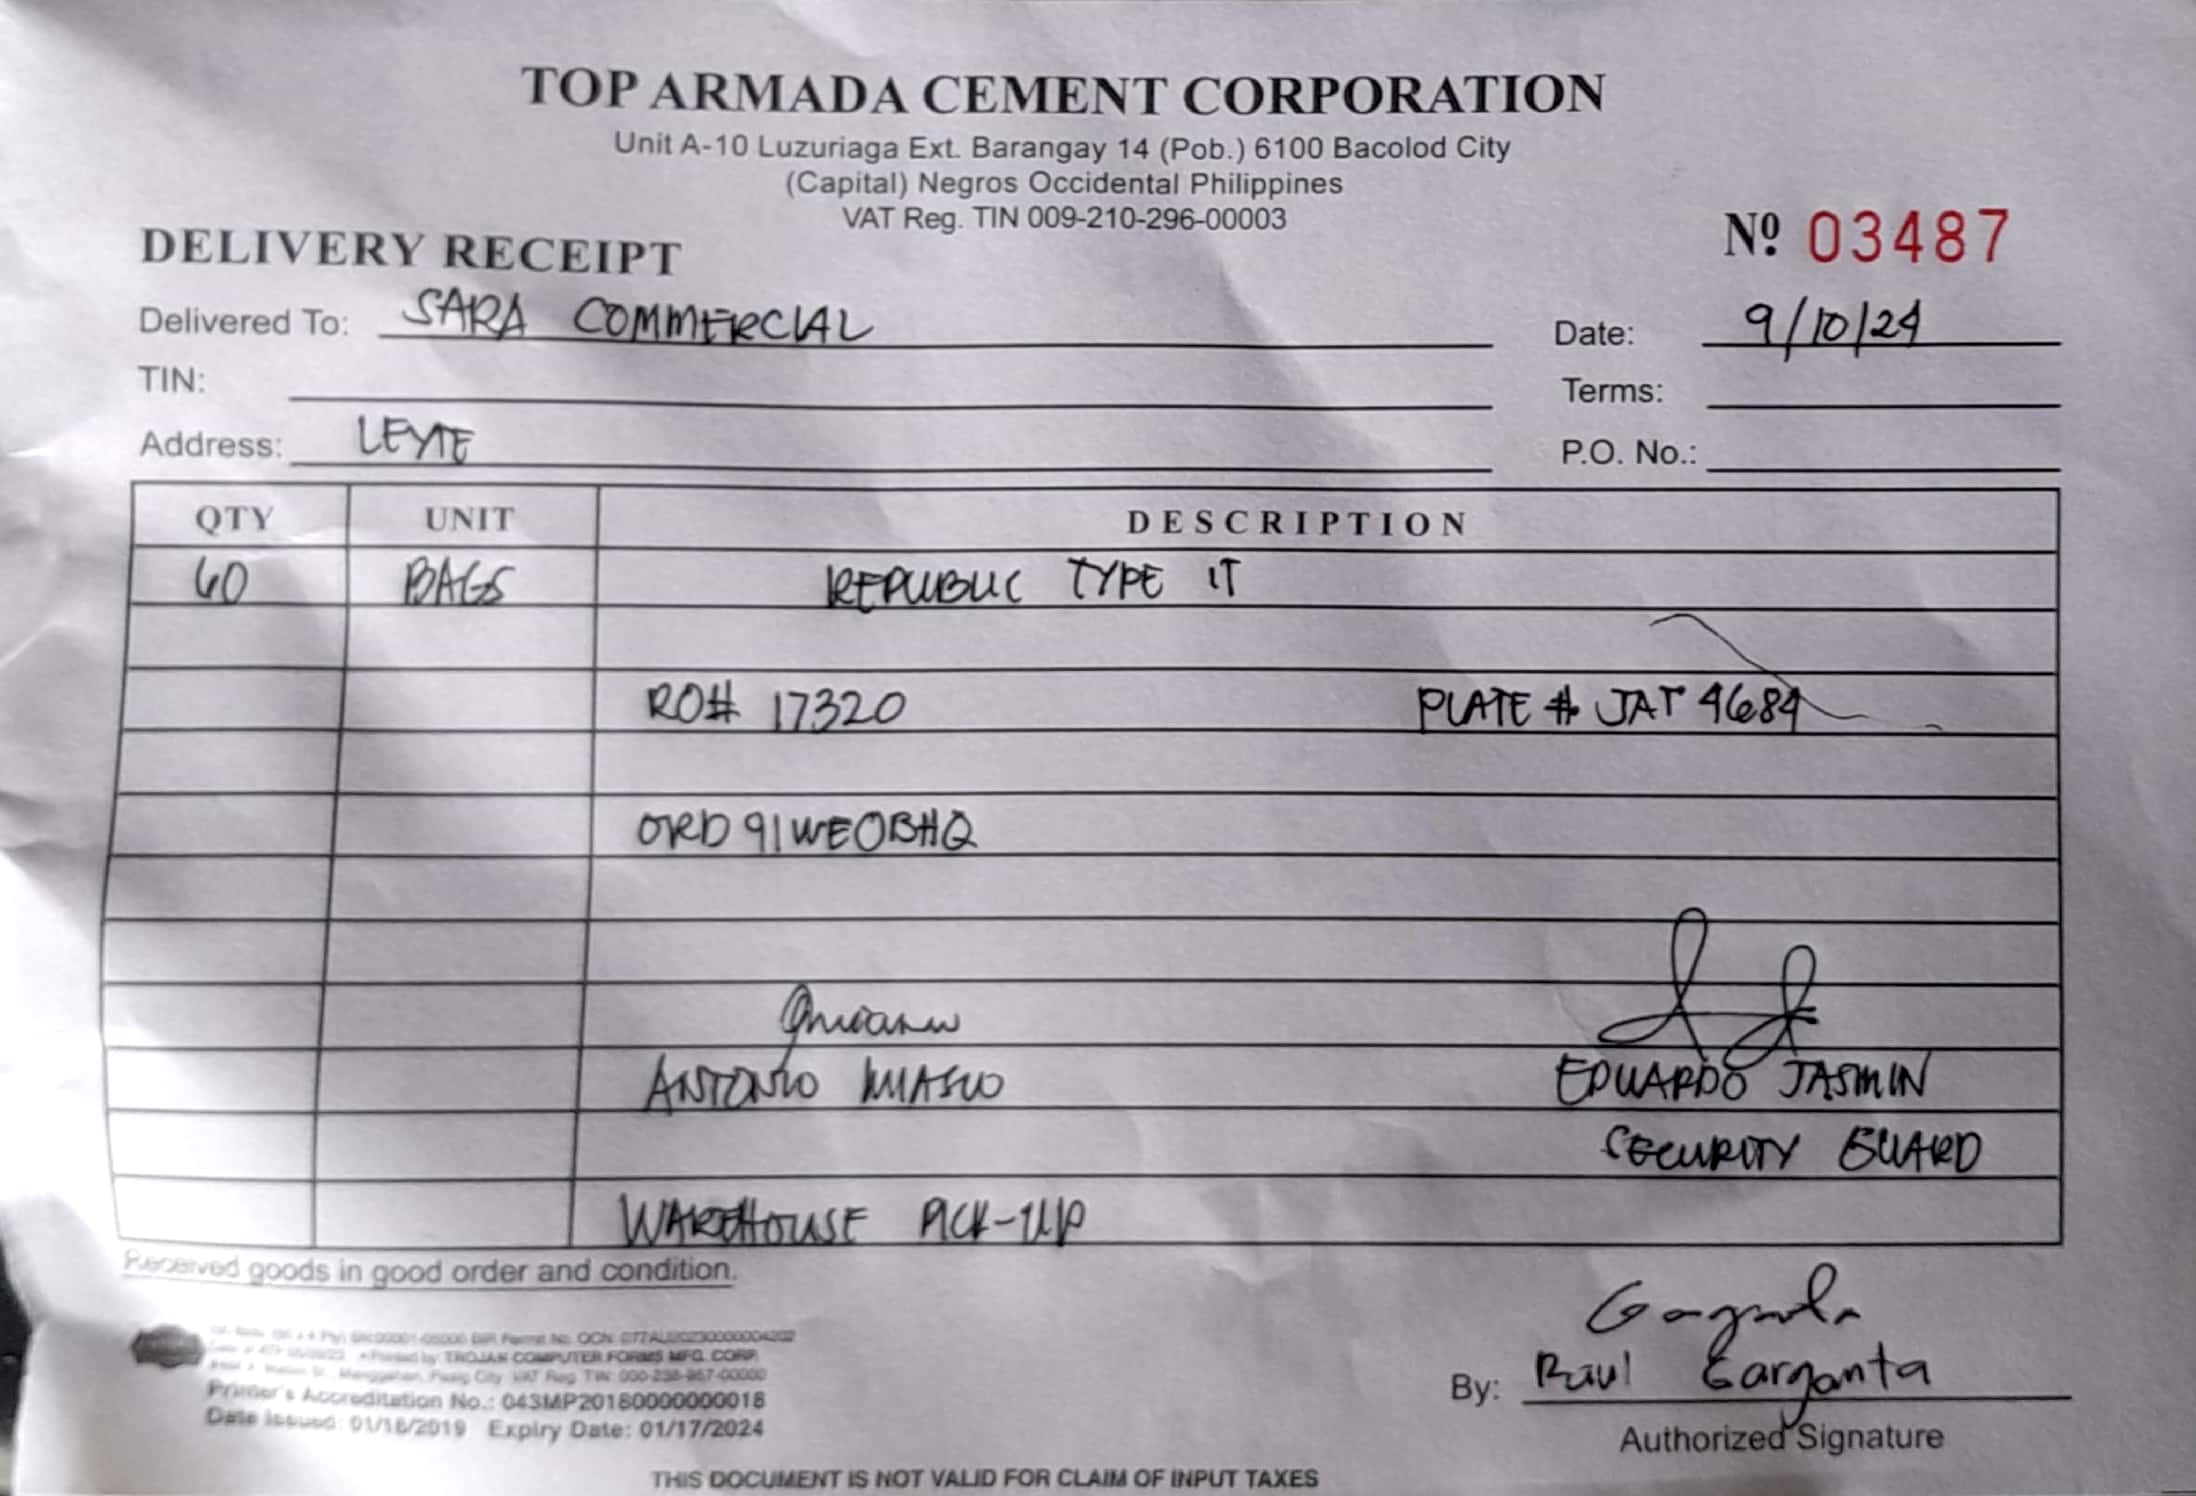 TOP ARMADA CEMENT CORPORATION
Unit A-10 Luzuriaga Ext. Barangay 14 (Pob.) 6100 Bacolod City
(Capital) Negros Occidental Philippines
VAT Reg. TIN 009-210-296-00003
Nº 03487
DELIVERY RECEIPT
Delivered To: SARA COMMERCIAL
Date: 9/10/24
TIN:
Terms:
Address: LEYTE
P.O. No.:
QTY UNIT DESCRIPTION
60 BAGS REPUBLIC TYPE 1T
RO# 17320 PLATE # JAT 4684
ORD91WEOBHQ
ANTONIO
EDUARDO JASMIN
SECURITY GUARD
WAREHOUSE PICK-UP
Received goods in good order and condition.
TROJAN COMPUTER FORMS MFG. CORP.
Printer's Accreditation No.: 043MP20180000000018
Date Issued: 01/18/2019 Expiry Date: 01/17/2024
By: Raul Garganta
Authorized Signature
THIS DOCUMENT IS NOT VALID FOR CLAIM OF INPUT TAXES